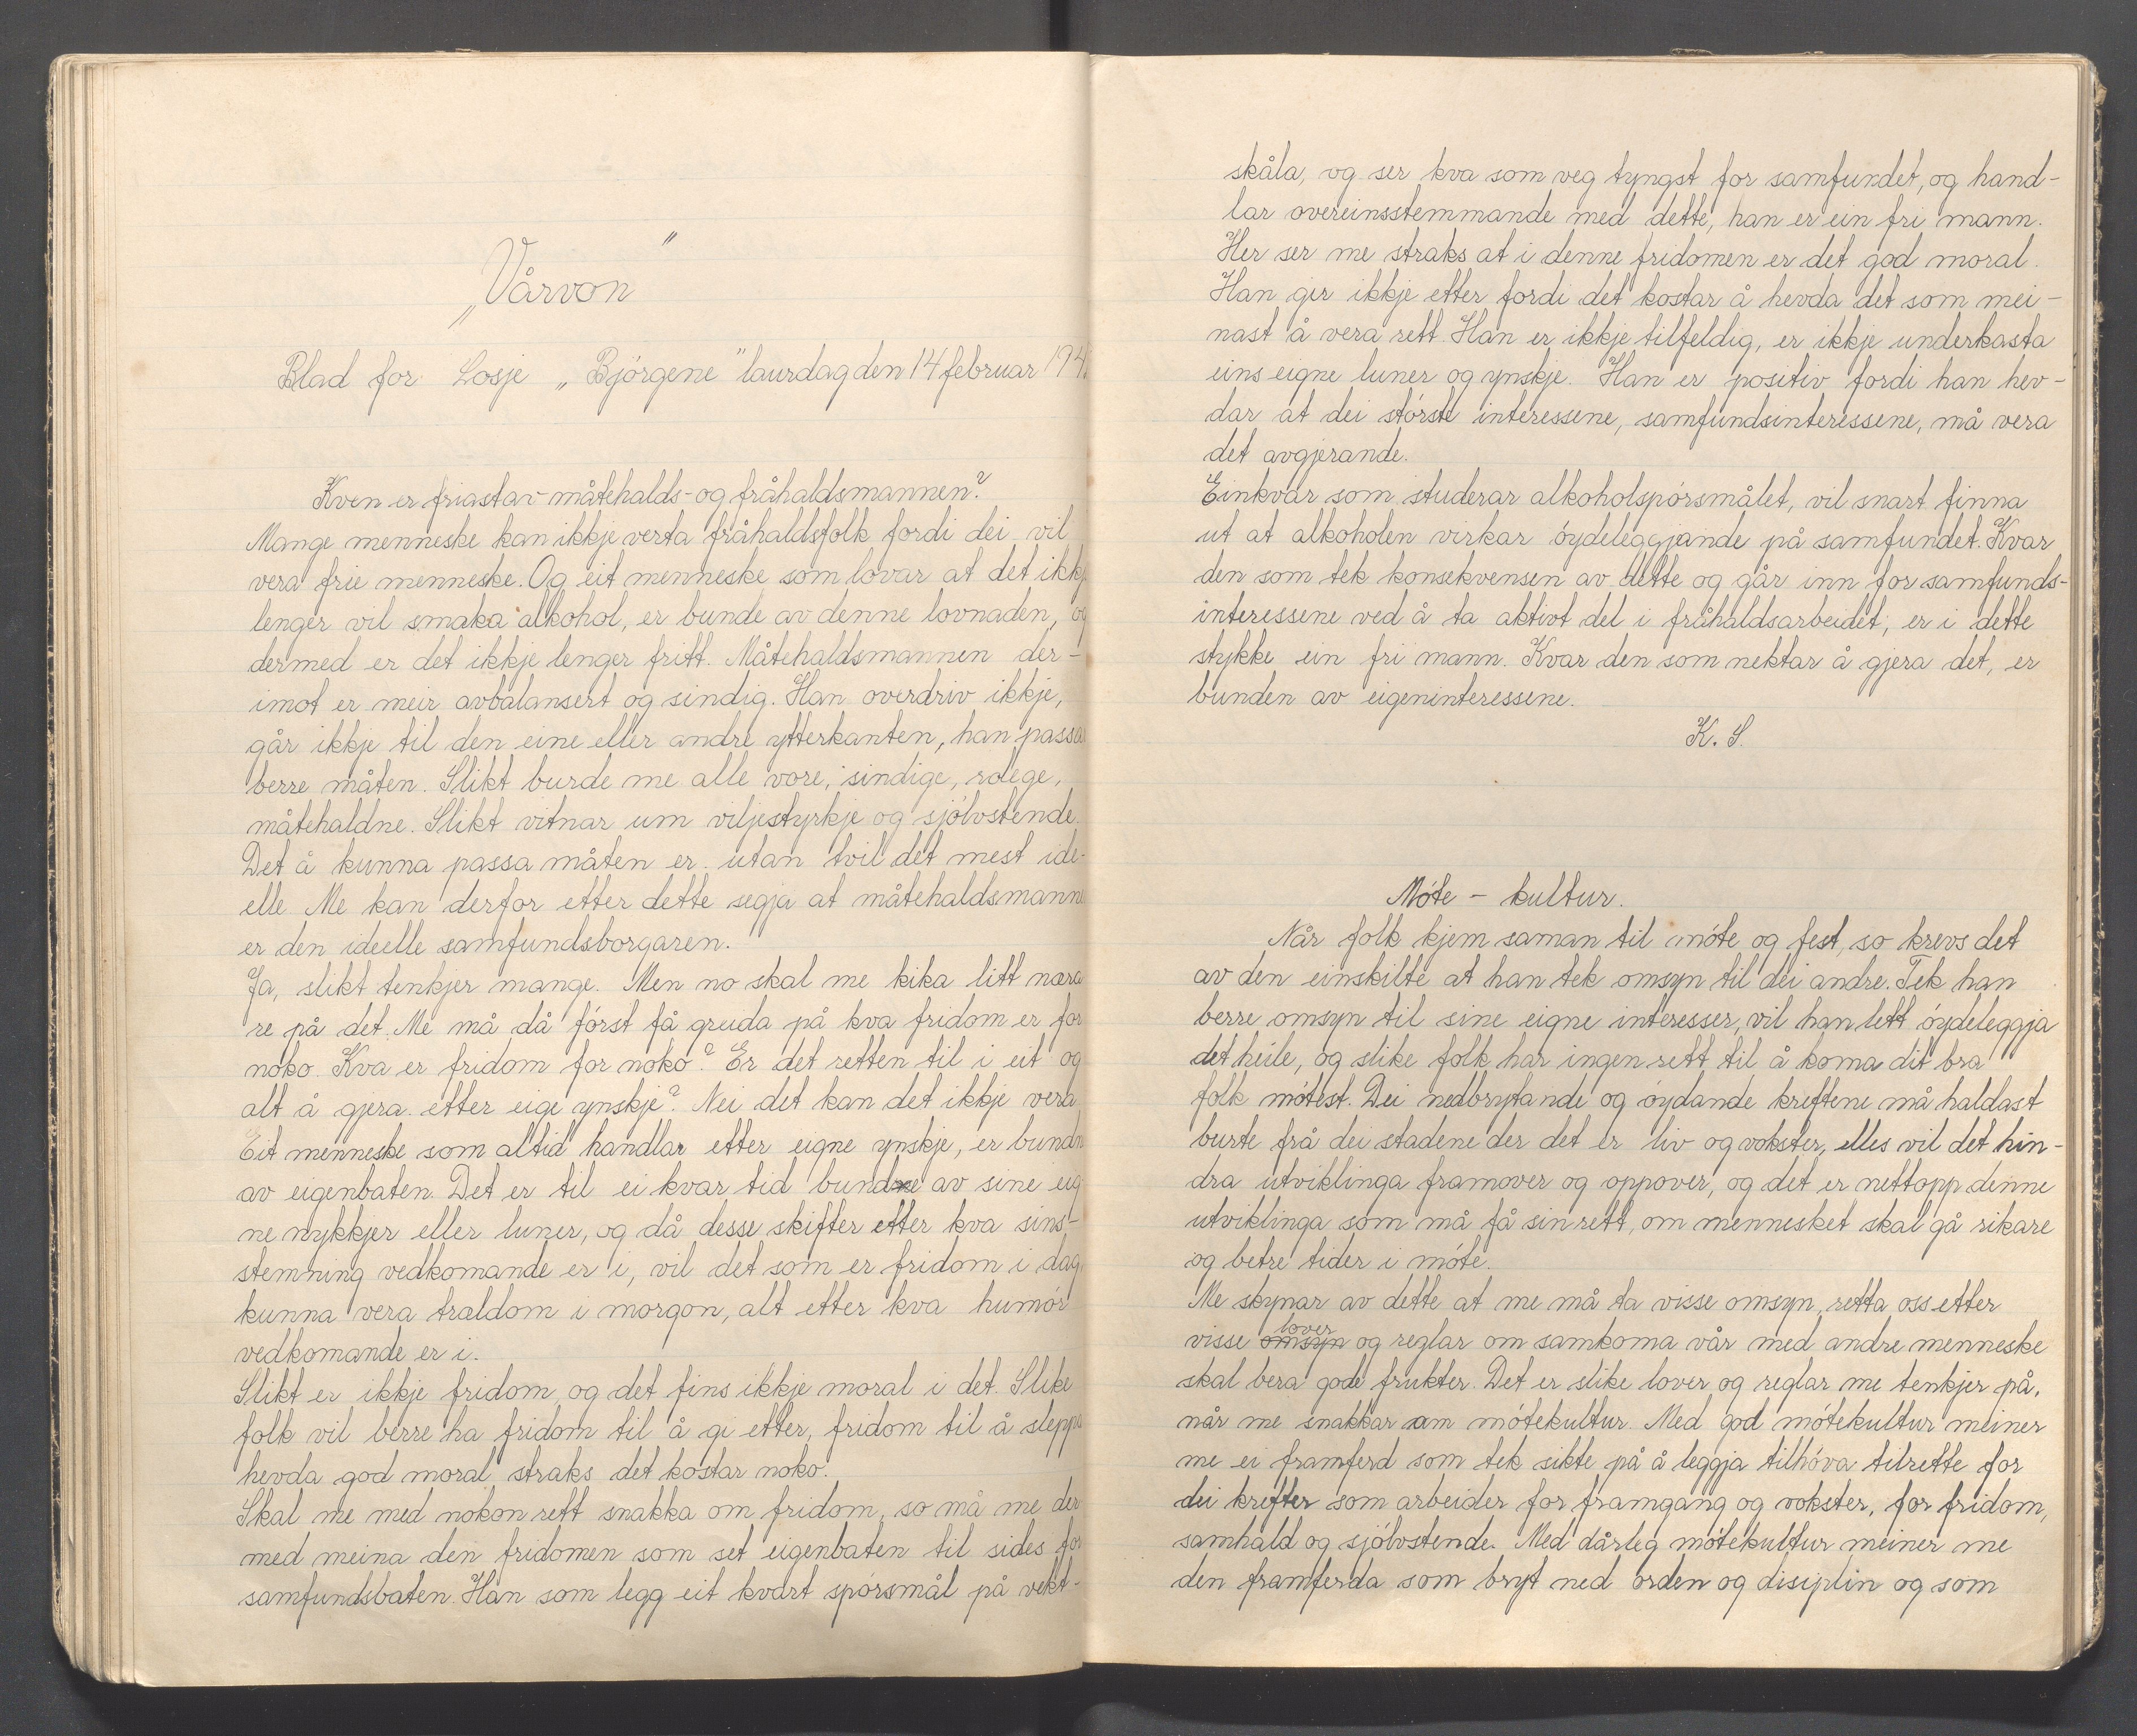 „Vårvon"
Blad for Losje „Bjórgene" laurdag den 14 februar 194
Kven er friast av måtehalds- og fråhaldsmannen?
Mange menneske kan ikkje verta fråhaldsfolk fordi dei vil
vera frie menneske. Og eit menneske som lovar at det ikkje
lenger vil smaka alkohol, er bunde av denne lovnaden, og
dermed er det ikkje lenger fritt. Måtehaldsmannen der-
imot er meir avbalansert og sindig. Han overdriv ikkje,
går ikkje til den eine eller andre ytterkanten, han passar
berre måten. Slikt burde me alle vore, sindige, rolege,
måtehaldne. Slikt vitnar um viljestyrkje og sjólvstende.
Det å kunna passa måten er utan tvil det mest ide-
elle. Me kan derfor etter dette segja at måtehaldsmannen
er den ideelle samfundsborgaren.
Ja, slikt tenkjer mange. Men no skal me kika litt næra
re på det. Me må då fórst få greida på kva fridom er for
noko. Kva er fridom for noko? Er det retten til i eit og
alt å gjera etter eige ynskje? Nei det kan det ikkje vera.
Eit menneske som altid handlar etter eigne ynskje, er bunde
av eigenbaten. Det er til ei kvar tid bunde av sine eig
ne nykkjer eller luner, og då desse skifter etter kva sins-
stemning vedkomande er i, vil det som er fridom i dag,
kunna vera trældom i morgon, alt etter kva humór
vedkomande er i.
Slikt er ikkje fridom, og det fins ikkje moral i det. Slike
folk vil berre ha fridom til å gi etter, fridom til å sleppa
hevda god moral straks det kostar noko.
Skal me med nokon rett snakka om fridom, so må me der
med meina den fridomen som set eigenbaten til sides for
samfundsbaten. Han som legg eit kvart spórsmål på vekt-
skåla, og ser kva som veg tyngst for samfundet, og hand-
lar overeinsstemmande med dette, han er ein fri mann.
Her ser me straks at i denne fridomen er det god moral.
Han gir ikkje etter fordi det kostar å hevda det som mei-
nast å vera rett. Han er ikkje tilfeldig, er ikkje underkasta
eins eigne luner og ynskje. Han er positiv fordi han hev-
dar at dei stórste interessene, samfundsinteressene, må vera
det avgjerande.
Einkvar som studerar alkoholspórsmålet, vil snart finna
ut at alkoholen virkar óydeleggjande på samfundet. Kvar
den som tek konsekvensen av dette og går inn for samfunds-
interessene ved å ta aktivt del i fråhaldsarbeidet, er i dette
stykke ein fri mann. Kvar den som nektar å gjera det, er
bunden av eigeninteressene.
K. S.
Móte - kultur.
Når folk kjem saman til móte og fest, so krevs det
av den einskilte at han tek omsyn til dei andre. Tek han
berre omsyn til sine eigne interesser, vil han lett óydeleggja
det heile, og slike folk har ingen rett til å koma dit bra
folk mótest. Dei nedbrytande og óydande kreftene må haldast
burte frå dei stadene der det er liv og vokster, elles vil det hin-
dra utviklinga framover og oppover, og det er nettopp denne
utviklinga som må få sin rett, om mennesket skal gå rikare
og betre tider i móte.
Me skynar av dette at me må ta visse omsyn, retta oss etter
visse omsyn lover og reglar om samkoma vår med andre menneske
skal bera gode frukter. Det er slike lover og reglar me tenkjer på,
når me snakkar om mótekultur. Med god mótekultur meiner
me ei framferd som tek sikte på å leggja tilhóva tilrette for
dei krefter som arbeider for framgang og vokster, for fridom,
samhald og sjólvstende. Med dårleg mótekultur meiner me
den framferda som bryt ned orden og disiplin og som